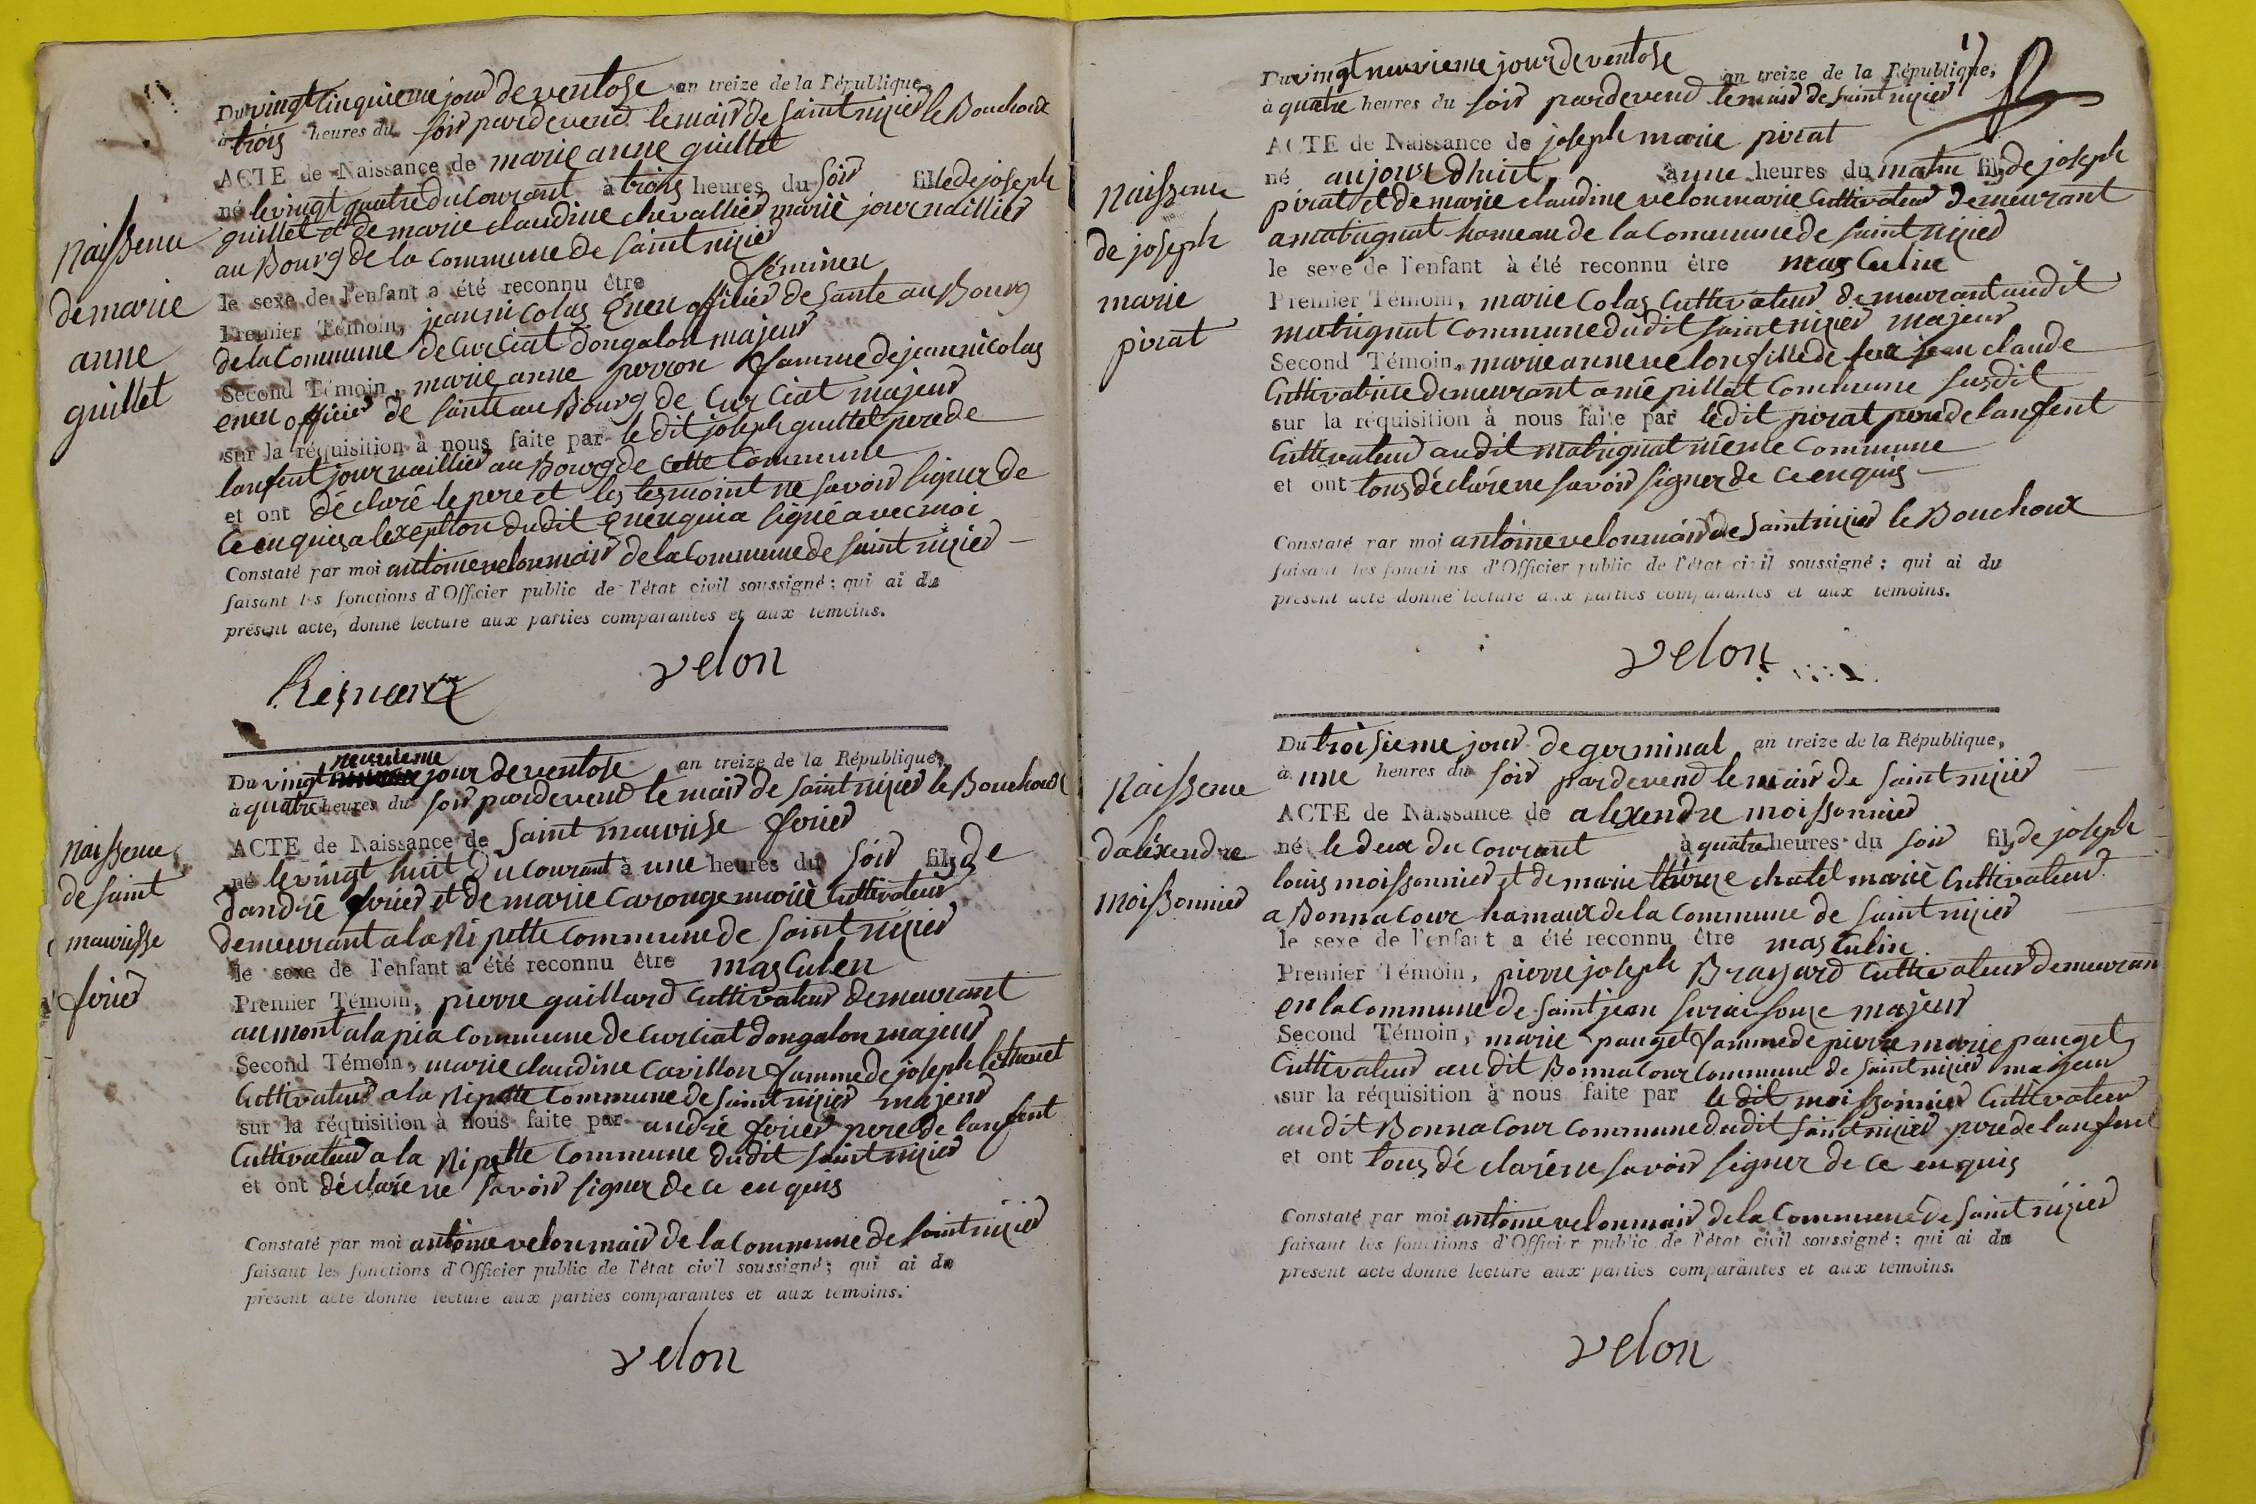 Du vingt cinquieme jour de ventose an treize de la République,
à trois heures du soir pardevend le maire de saint nizier le Bouchoux
ACTE de Naissance de marie anne guillet
né le vingt quatre du Courant à trois heures du soir fille de joseph
guillet et de marie claudine chevallier marié journaillier
au Bourg de la Commune de saint nizier
le sexe de l'enfant a été reconnu être féminen
Premier Témoin, jean nicolas officier de sante au Bourg
de la Commune de Curciat dongalon majeur
Second Témoin, marie anne perron famme de jean nicolas
officier de sante au Bourg de Curciat majeur
sur la réquisition à nous faite par le dit joseph guillet pere de
lanfent journaillier au Bourg de cette Commune
et ont déclaré le pere et les tesmoint ne savoir signer de
ce enquis a lexeption dudit qui a signé avec moi
Constaté par moi antoine velon mair de la Commune de saint nizier
faisant les fonctions d'Officier public de l'état civil soussigné; qui ai du
présent acte, donné lecture aux parties comparantes et aux temoins.
velon
naissence
de marie
anne
guillet
Du vingt neuvieme jour de ventose an treize de la République,
à quatre heures du soir pardevend le mair de saint nizier le Bouchoux
ACTE de Naissance de saint maurise ferier
né le vingt huit du courant à une heures du soir fils de
dandré ferier et de marie Carouge marié Cultivateur
demeurant a la Ripette Commune de saint nizier
le sexe de l'enfant a été reconnu être masculen
Premier Témoin, pierre guillard Cultivateur demeurant
au mont a la pia Commune de Curciat dongalon majeur
Second Témoin, marie claudine Cavillon famme de joseph
Cultivateur a la Ripette Commune de saint nizier majeur
sur la réquisition à nous faite par andré ferier pere de lanfent
Cultivateur a la Ripette Commune dudit saint nizier
et ont déclaré ne savoir signer de ce enquis
Constaté par moi antoine velon mair de la Commune de saint nizier
faisant les fonctions d'Officier public de l'état civil soussigné; qui ai du
présent acte donné lecture aux parties comparantes et aux temoins.
velon
naissence
de saint
maurisse
ferier
Du vingt neuvieme jour de ventose an treize de la République,
à quatre heures du soir pardevend le mair de saint nizier
ACTE de Naissance de joseph marie pirat
né aujourdhuit à une heures du matin fils de joseph
pirat et de marie claudine velon marie Cultivateur demeurant
a matignat hameau de la Commune de saint nizier
le sexe de l'enfant à été reconnu être masculine
Premier Témoin, marie Colas Cultivateur demeurant audit
matignat Commune dudit saint nizier majeur
Second Témoin, marie anne velon fille de feu jean claude
Cultivatrice demeurant a Commune susdit
sur la réquisition à nous faite par ledit pirat pere de lanfent
Cultivateur audit matignat même Commune
et ont tous déclaré ne savoir signer de ce enquis
Constaté par moi antoine velon mair de saint nizier le Bouchoux
faisant les fonctions d'Officier public de l'état civil soussigné; qui ai du
présent acte donné lecture aux parties comparantes et aux temoins.
velon
naissence
de joseph
marie
pirat
Du troisieme jour de germinal an treize de la République,
à une heures du soir pardevend le mair de saint nizier
ACTE de Naissance de alexendre moissonnier
né le deux du courant à quatre heures du soir fils de joseph
louis moissonnier et de marie therese chatel marié Cultivateur
a Bonnacour hamaux de la Commune de saint nizier
le sexe de l'enfant a été reconnu être masculin
Premier Témoin, pierre joseph Brayard Cultivateur demeuran
en la Commune de saint jean majeur
Second Témoin, marie panget famme de pierre marie panget
Cultivateur audit Bonnacour Commune de saint nizier majeur
sur la réquisition à nous faite par ledit moissonnier Cultivateur
audit Bonnacour Commune dudit saint nizier pere de lanfent
et ont tous déclaré ne savoir signer de ce enquis
Constaté par moi antoine velon mair de la Commune de saint nizier
faisant les fonctions d'Officier public de l'état civil soussigné; qui ai du
présent acte donné lecture aux parties comparantes et aux temoins.
velon
naissence
daléxendre
moissonnier